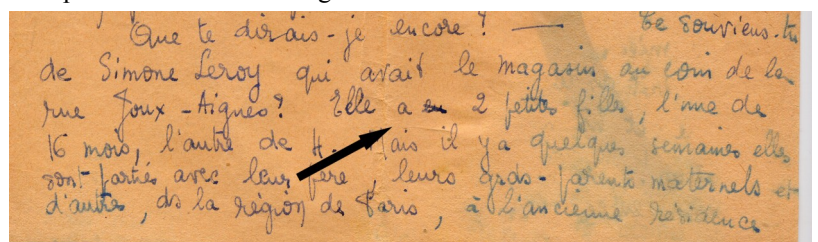 Que te dirais-je encore ? — Te souviens-tu
de Simone Leroy qui avait le magasin au coin de la
rue Joux-Aignes ? Elle a eu 2 petites filles, l'une de
16 mois, l'autre de 4. Mais il y a quelques semaines elles
sont parties avec leur père, leurs grds-parents maternels et
d'autres, ds la région de Paris, à l'ancienne résidence